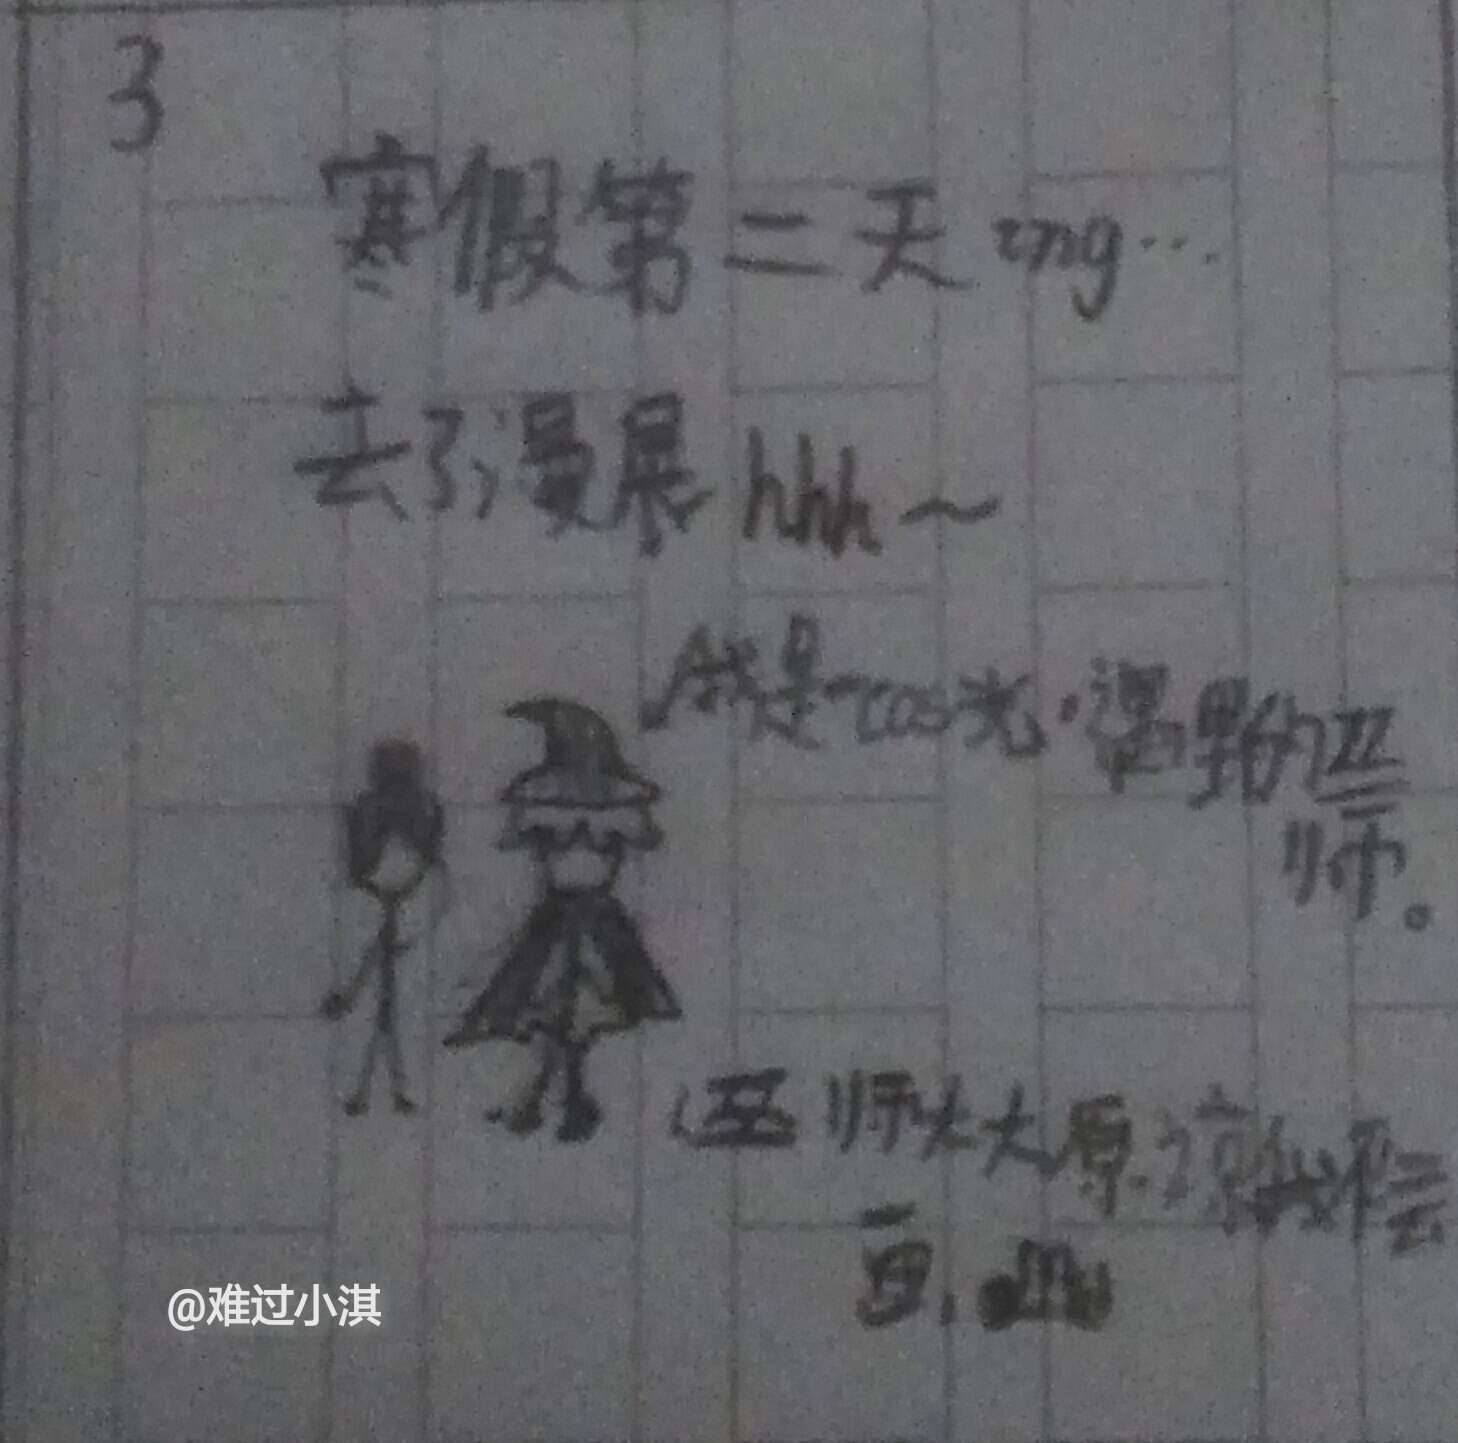 3
寒假第二天ing…
去了漫展hhh～
我是cos光·遇野的巫
师。
(巫师大大原谅我不会
画,
@难过小淇